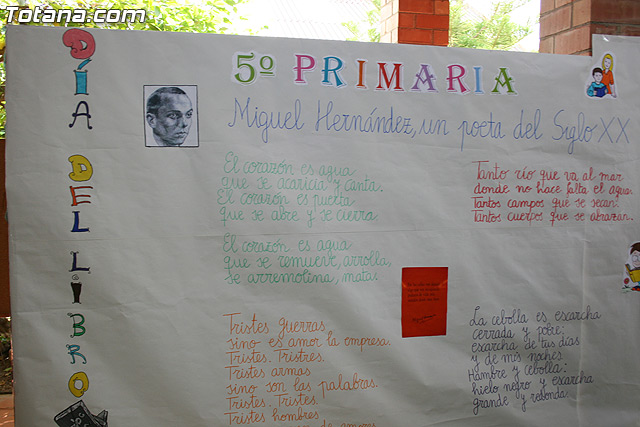 Totana.com
DÍA DEL LIBRO
5º PRIMARIA
Miguel Hernández, un poeta del Siglo XX
El corazón es agua
que se acaricia y canta.
El corazón es puerta
que se abre y se cierra
El corazón es agua
que se remueve, arrolla,
se arremolina, mata.
Tristes guerras
sino es amor la empresa.
Tristes. Tristes.
Tristes armas
sino son las palabras.
Tristes. Tristes.
Tristes hombres
de amores
Tanto río que va al mar
donde no hace falta el agua.
Tantos campos que se secan.
Tantos cuerpos que se abrazan.
La cebolla es escarcha
cerrada y pobre:
escarcha de tus días
y de mis noches.
Hambre y cebolla:
hielo negro y escarcha
grande y redonda.